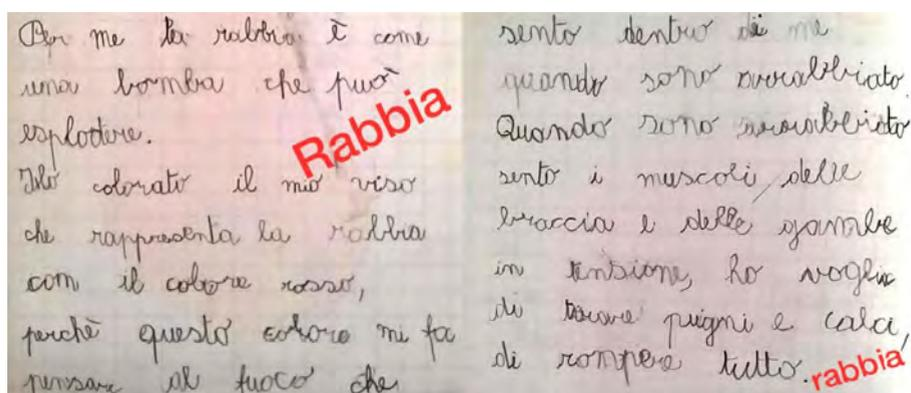 Per me la rabbia è come
una bomba che può
esplodere.
Rabbia
Ho colorato il mio viso
che rappresenta la rabbia
com il colore rosso,
perchè questo colore mi fa
pensare al fuoco che
sento dentro di me
quando sono arrabbiato.
Quando sono arrabbiato
sento i muscoli delle
braccia e delle gambe
in tensione, ho voglia
di tirare pugni e calci,
di rompere tutto.
rabbia